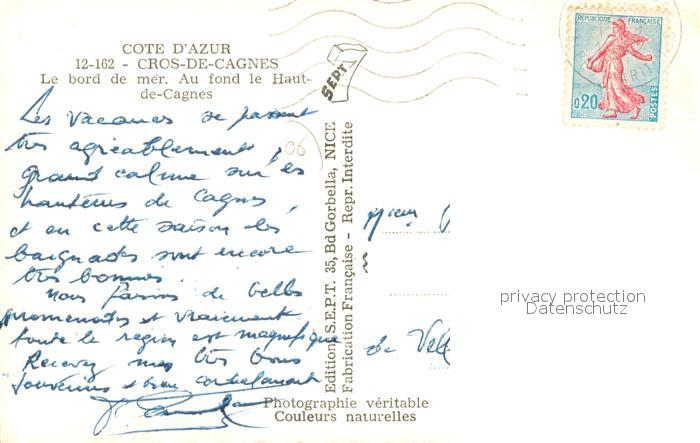 COTE D'AZUR
12-162 - CROS-DE-CAGNES
Le bord de mer. Au fond le Haut-
de-Cagnes
Les vacances se passent
très agréablement,
grand calme sur les
hauteurs de Cagnes,
et en cette saison les
baignades sont encore
très bonnes.
Nous faisons de belles
promenades et vraiment
toute la région est magnifique
Recevez mes très bons
souvenirs et bien cordialement
06
SEPT
Editions S.E.P.T. 35, Bd Gorbella, NICE
Fabrication Française - Repr. Interdite
REPUBLIQUE FRANÇAISE
0,20
POSTES
de
privacy protection
Datenschutz
Photographie véritable
Couleurs naturelles